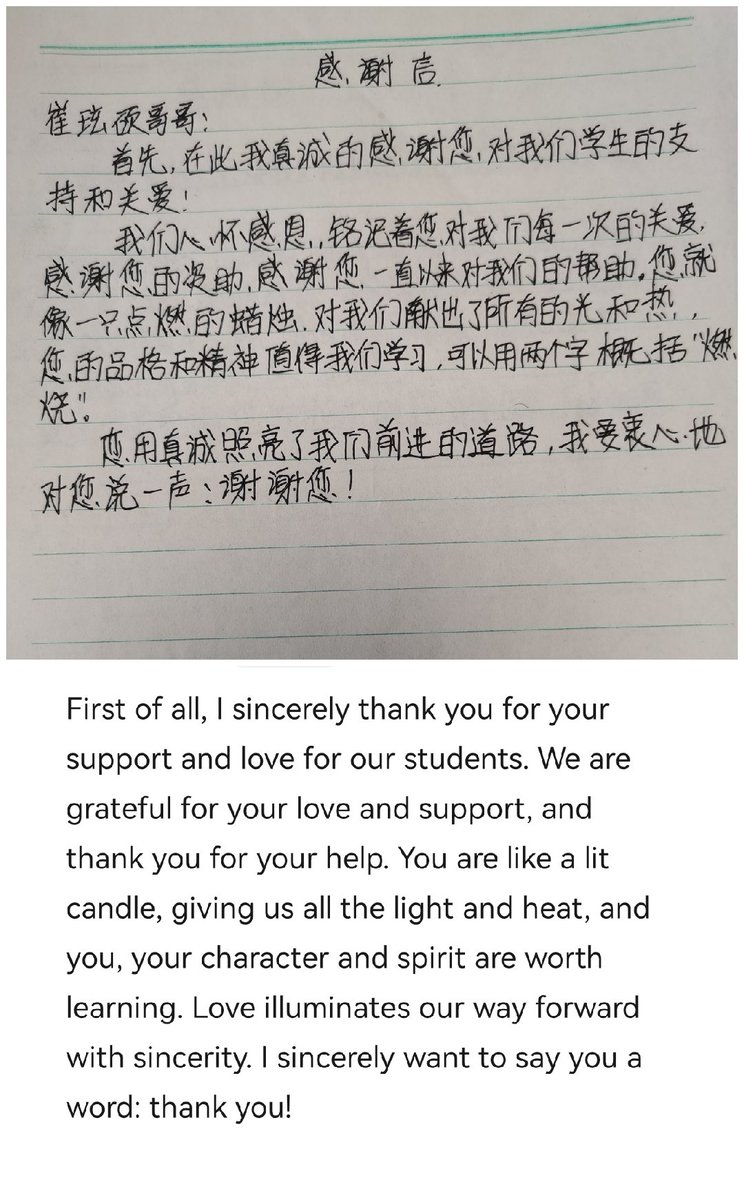 感谢信
崔玹硕哥哥:
首先,在此我真诚的感谢您,对我们学生的支
持和关爱!
我们心怀感恩,铭记着您对我们每一次的关爱,
感谢您的资助,感谢您一直以来对我们的帮助。您就
像一只点燃的蜡烛,对我们献出了所有的光和热,
您的品格和精神值得我们学习,可以用两个字概括"燃
烧"。
您用真诚照亮了我们前进的道路,我要衷心地
对您说一声:谢谢您!
First of all, I sincerely thank you for your
support and love for our students. We are
grateful for your love and support, and
thank you for your help. You are like a lit
candle, giving us all the light and heat, and
you, your character and spirit are worth
learning. Love illuminates our way forward
with sincerity. I sincerely want to say you a
word: thank you!